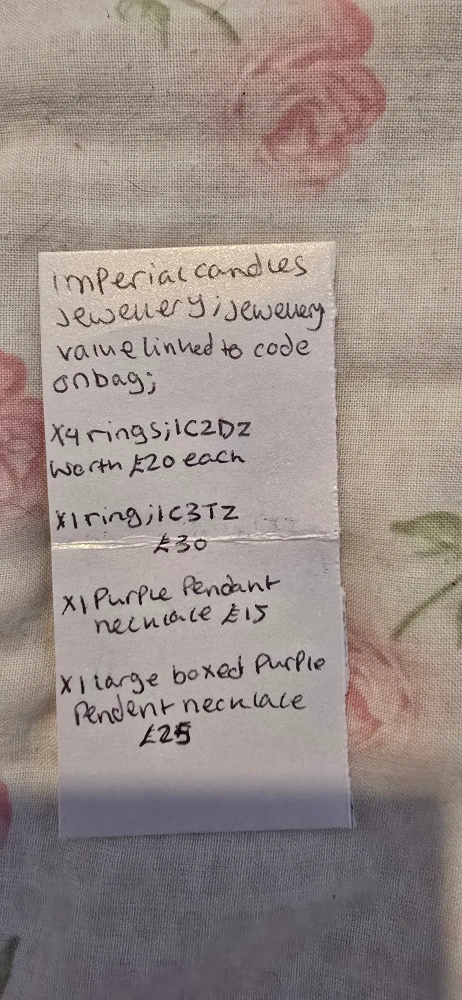 imperial candles
Jewellery; Jewellery
value linked to code
on bag;
x4 rings; IC2DZ
worth £20 each
x1 ring; IC3TZ
£30
x1 Purple Pendant
necklace £15
x1 large boxed Purple
Pendent necklace
£25